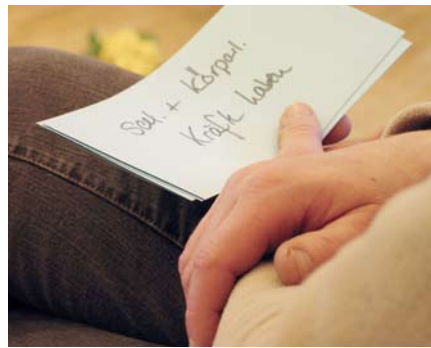 Seel. + körperl.
Kräfte haben